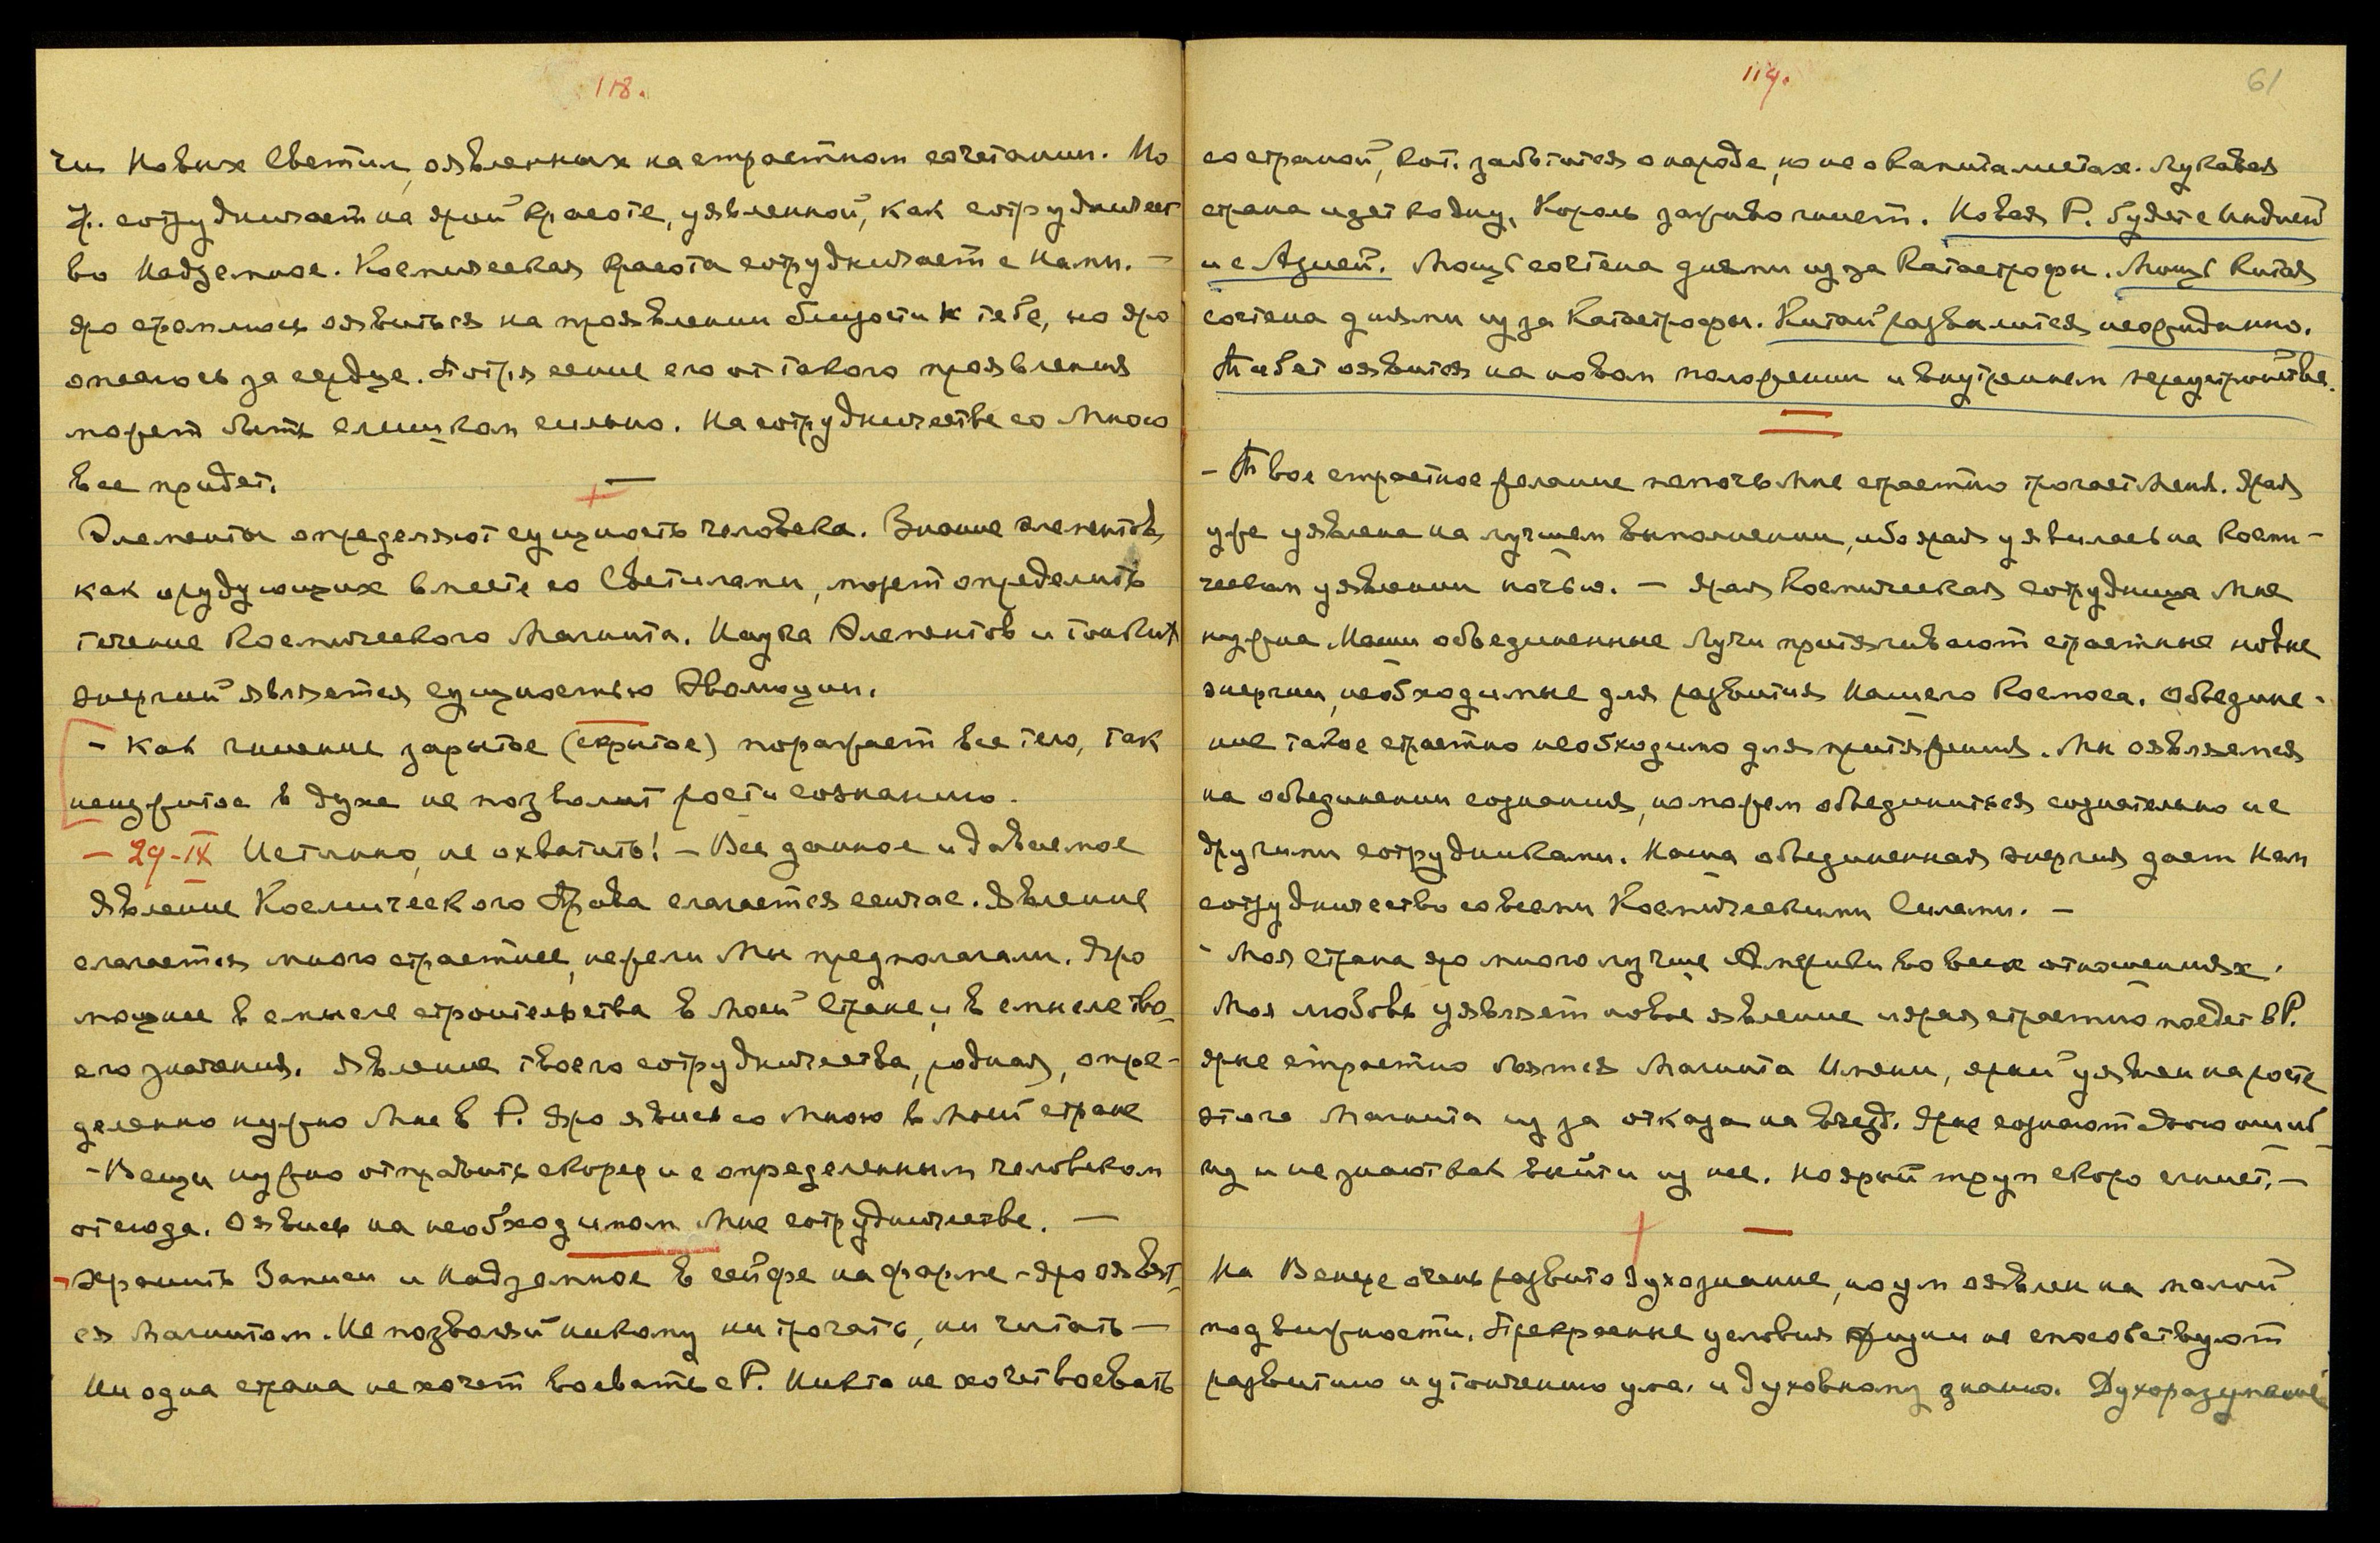 118.
чи Новых Светил, оявленных на страстном сочетании. Но
сотрудничает на ярой красоте, уявленной, как сотрудничест
во Надземное. Космическая красота сотрудничает с Нами. –
яро стремлюсь оявиться на проявлении близости к тебе, но яро
опасаюсь за сердце. Потрясение его от такого проявления
может быть слишком сильно. На сотрудничестве со Мною
все придет. —
Элементы определяют сущность человека. Знание элементов,
как орудующих вместе со Светилами, может определить
течение Космического Магнита. Наука Элементов и тонких
энергий является сущностью Эволюции.
– Как гниение зарытое (скрытое) поражает все тело, так
неизжитое в духе не позволит расти сознанию.
– 29-IX Истинно, не охватить! – Все данное и даваемое
явление Космического Права слагается сейчас. Явление
слагается много страстнее, нежели Мы предполагали. Яро
мощнее в смысле строительства в Моей Стране и в смысле тво-
его значения. Явление твоего сотрудничества, родная, опре-
деленно нужно Мне в Р. Яро явись со Мною в Моей стране
– Вещи нужно отправить скоро и с определенным человеком
отсюда. Оявись на необходимом Мне сотрудничестве. —
– Хранить Записи и Надземное в сейфе на фарме – яро оявят-
ся Магнитом. Не позволяй никому ни трогать, ни читать —
Ни одна страна не хочет воевать с Р. Никто не хочет воевать
119.
61
со страной, кот. заботится о народе, но не о капиталистах. Лукавая
страна идет ко дну, Король заживо гниет. Новая Р. будет с Индией
и с Азией. Мощь сочтена днями из за Катастрофы. Мощь Китая
сочтена днями из за Катастрофы. Китай развалится неожиданно.
Тибет оявится на новом положении и внутреннем переустройстве.
– Твое страстное желание помочь Мне страстно трогает Меня. Ярая
уже уявлена на лучшем выполнении, ибо ярая уявилась на Косми-
ческом уявлении ночью. – Ярая Космическая сотрудница Мне
нужна. Наши объединенные Лучи притягивают страстные новые
энергии, необходимые для развития Нашего Космоса. Объедине-
ние такое страстно необходимо для притяжения. Мы оявляемся
на объединении сознания, но можем объединиться сознательно и с
другими сотрудниками. Наша объединенная энергия дает Нам
сотрудничество со всеми Космическими Силами. –
– Моя Страна яро много лучше Америки во всех отношениях.
Моя любовь уявляет новое явление и ярая страстно поедет в Р.
ярые страстно боятся Магнита Имени, ярый уявлен на росте
этого Магнита из за отказа на въезд. Ярые сознают свою ошиб
ку и не знают как выйти из нее. Но ярый труп скоро сгниет. –
На Венере очень развито духознание, но ум оявлен на малой
подвижности. Прекрасные условия жизни не способствуют
развитию и утончению ума. и духовному знанию. Духоразумение